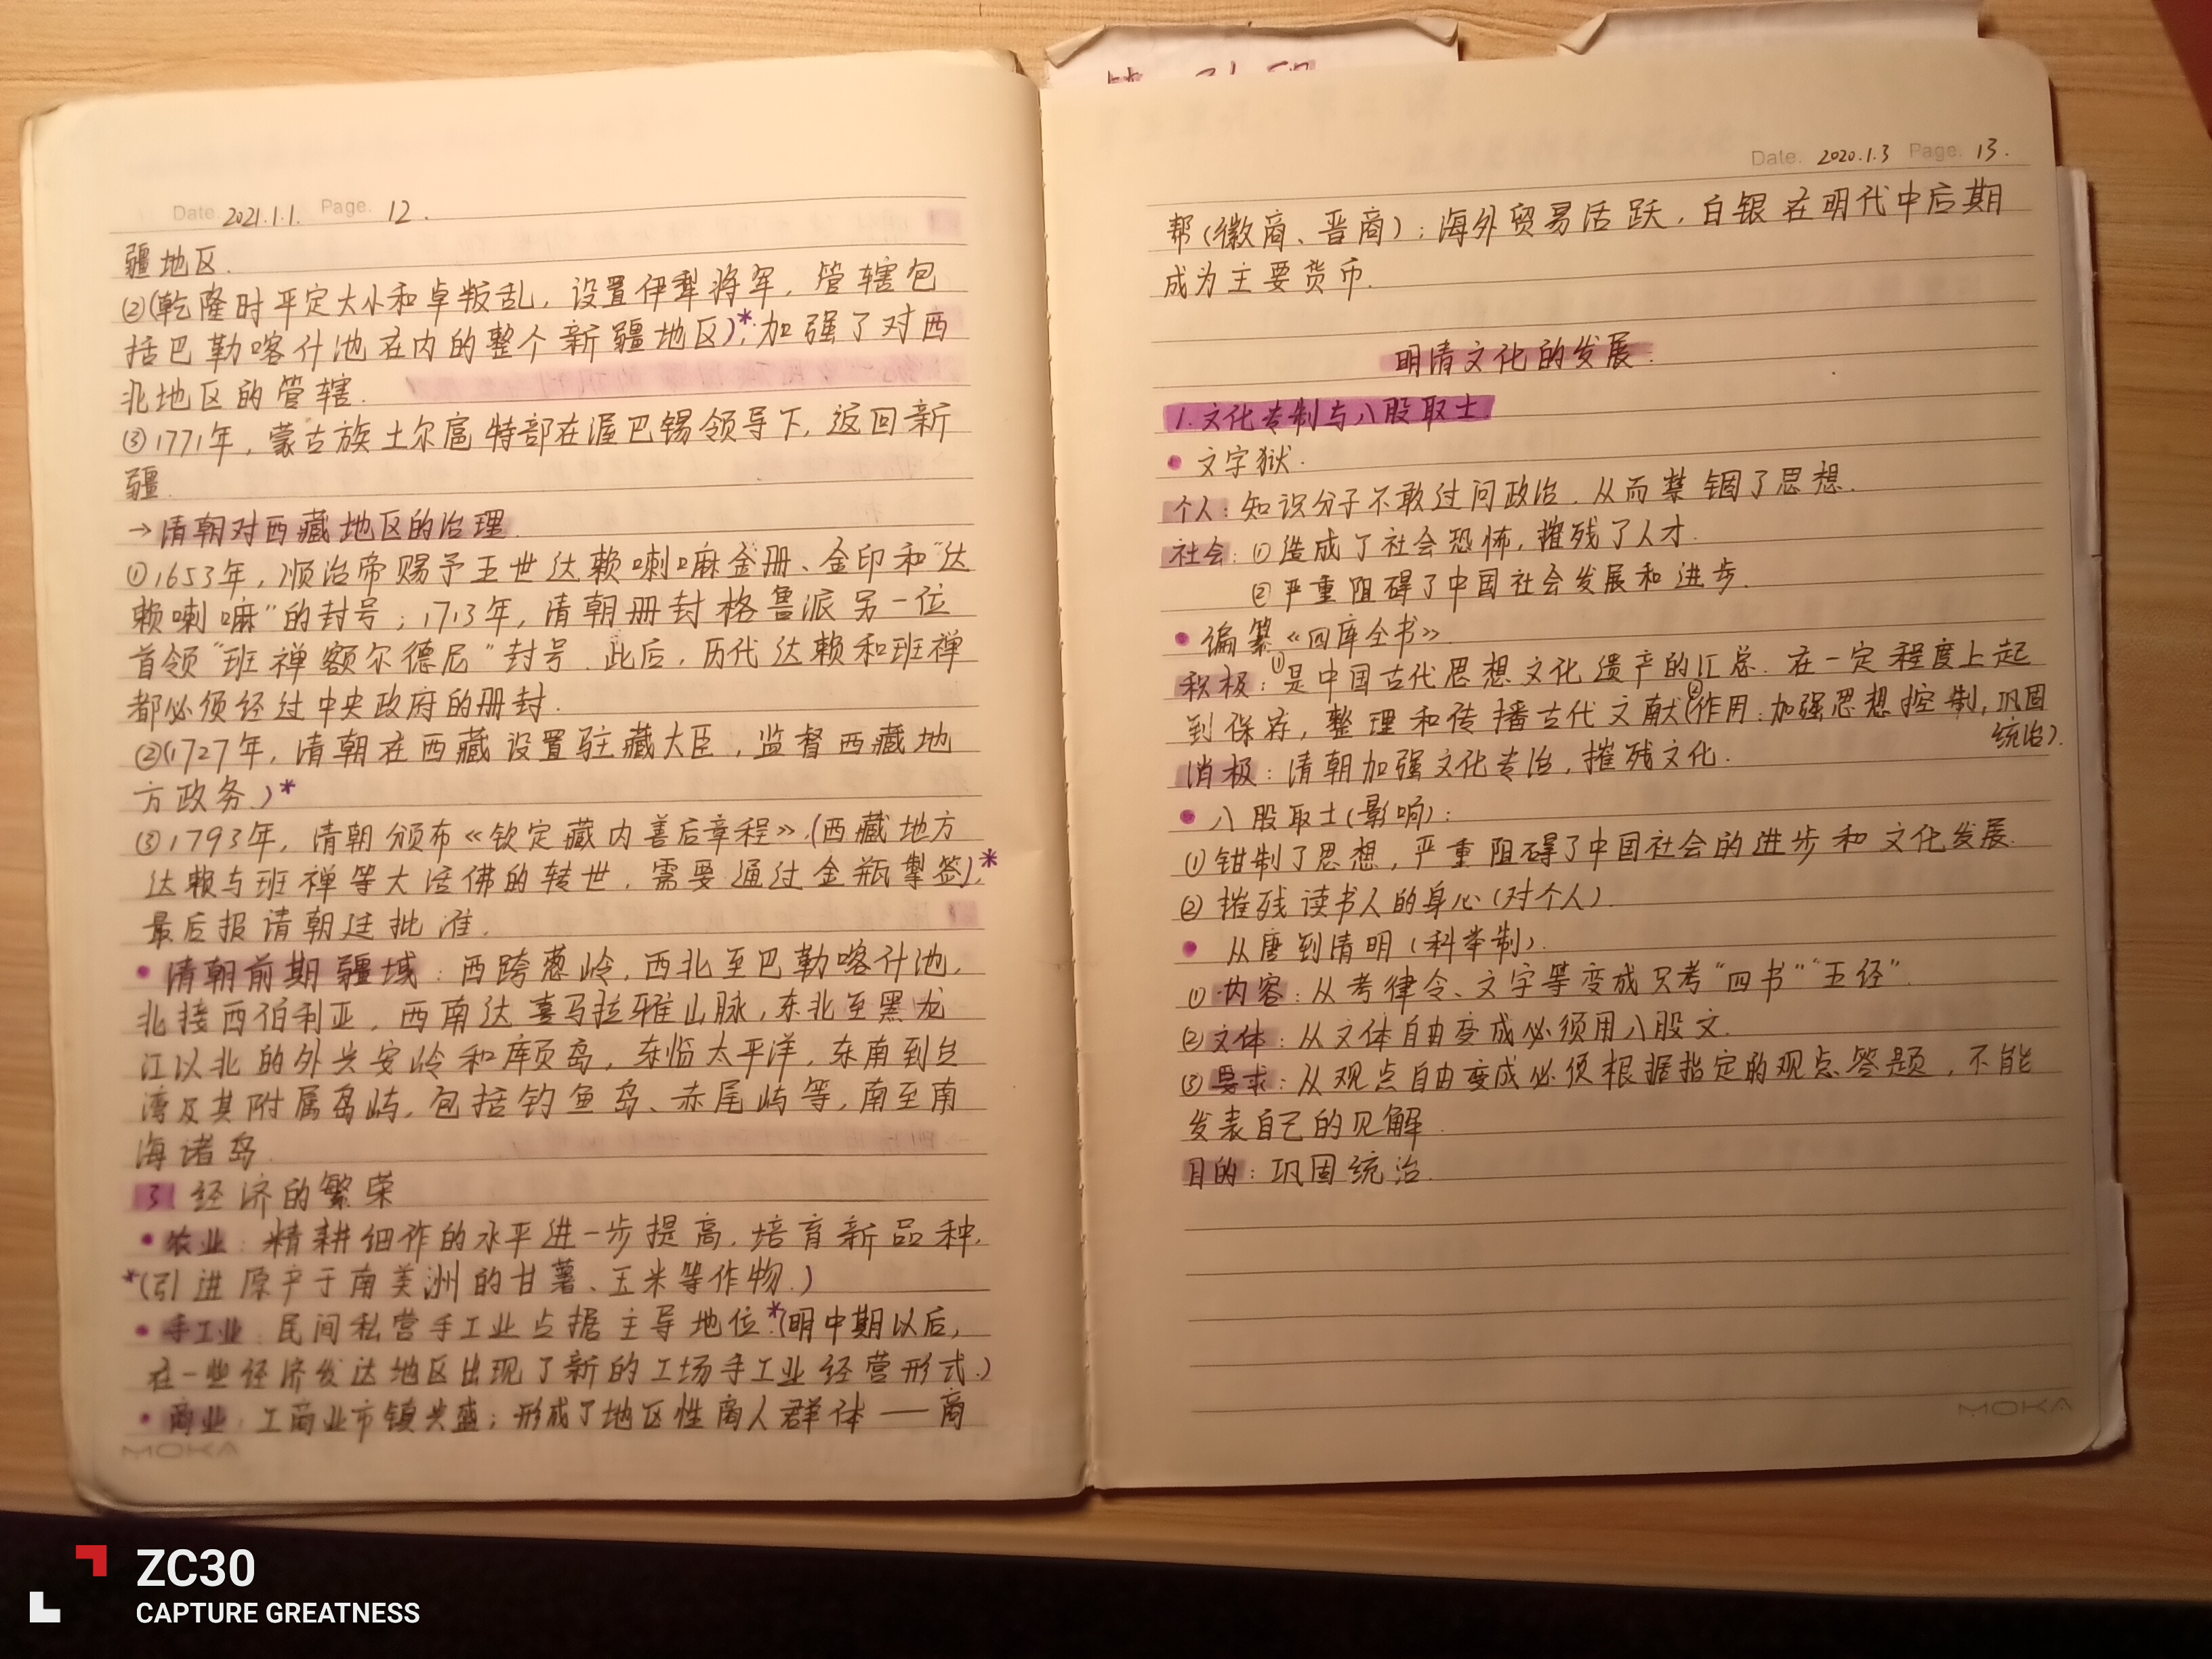 Date. 2021.1.1. Page. 12.
疆地区.
②(乾隆时平定大小和卓叛乱，设置伊犁将军，管辖包
括巴勒喀什池在内的整个新疆地区)*;加强了对西
北地区的管辖.
③1771年，蒙古族土尔扈特部在渥巴锡领导下，返回新
疆.
→清朝对西藏地区的治理.
①1653年，顺治帝赐予五世达赖喇嘛金册、金印和"达
赖喇嘛"的封号；1713年，清朝册封格鲁派另一位
首领"班禅额尔德尼"封号.此后，历代达赖和班禅
都必须经过中央政府的册封.
②(1727年，清朝在西藏设置驻藏大臣，监督西藏地
方政务.)*
③1793年，清朝颁布《钦定藏内善后章程》.(西藏地方
达赖与班禅等大活佛的转世，需要通过金瓶掣签).*
最后报请朝廷批准.
•清朝前期疆域：西跨葱岭，西北至巴勒喀什池，
北接西伯利亚，西南达喜马拉雅山脉，东北至黑龙
江以北的外兴安岭和库页岛，东临太平洋，东南到台
湾及其附属岛屿，包括钓鱼岛、赤尾屿等，南至南
海诸岛
3.经济的繁荣
•农业：精耕细作的水平进一步提高，培育新品种，
*(引进原产于南美洲的甘薯、玉米等作物.)
•手工业：民间私营手工业占据主导地位*.(明中期以后，
在一些经济发达地区出现了新的工场手工业经营形式.)
•商业：工商业市镇兴盛；形成了地区性商人群体——商
MOKA
Date. 2020.1.3 Page. 13.
帮(徽商、晋商)；海外贸易活跃，白银在明代中后期
成为主要货币.
明清文化的发展.
1.文化专制与八股取士.
•文字狱.
个人：知识分子不敢过问政治，从而禁锢了思想.
社会：①造成了社会恐怖，摧残了人才.
②严重阻碍了中国社会发展和进步.
•编纂《四库全书》.
积极：①是中国古代思想文化遗产的汇总.在一定程度上起
到保存，整理和传播古代文献②(作用：加强思想控制，巩固
统治).
消极：清朝加强文化专治，摧残文化.
•八股取士(影响)：
①钳制了思想，严重阻碍了中国社会的进步和文化发展.
②摧残读书人的身心(对个人).
•从唐到清明(科举制).
①内容：从考律令、文字等变成只考"四书""五经".
②文体：从文体自由变成必须用八股文.
③要求：从观点自由变成必须根据指定的观点答题，不能
发表自己的见解.
目的：巩固统治.
MOKA
ZC30
CAPTURE GREATNESS